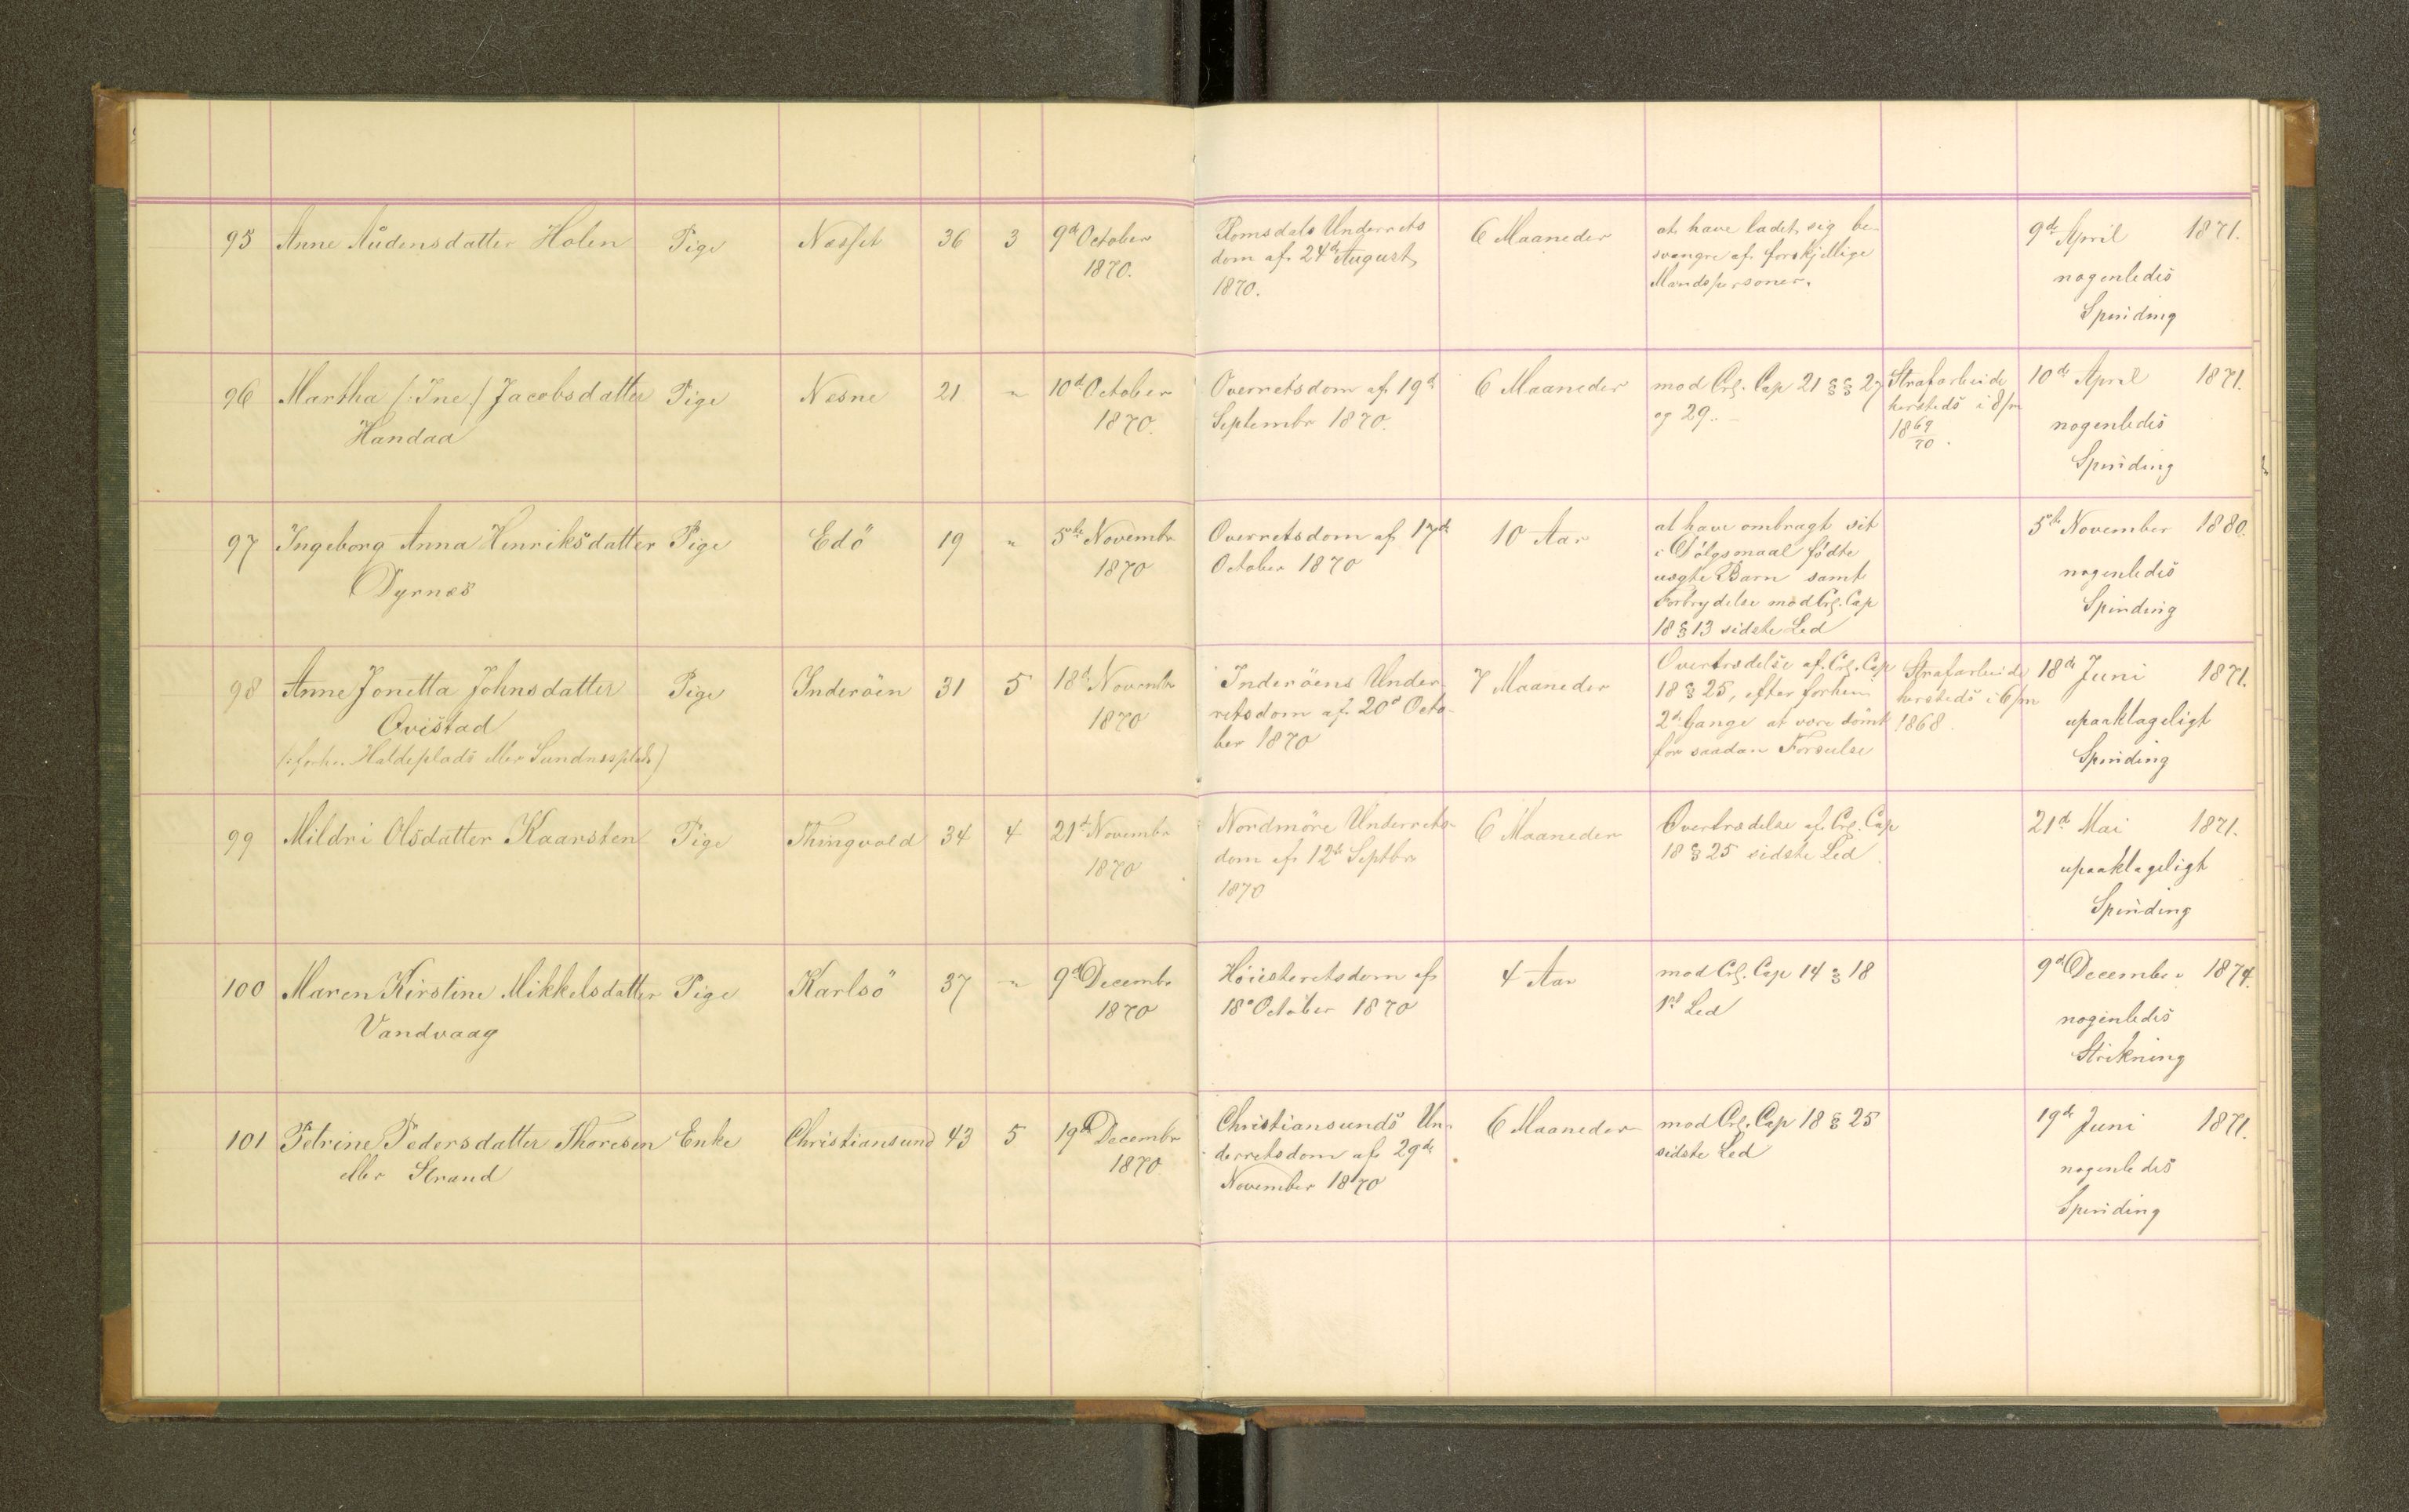 95 Anne Audensdatter Holen Pige Nesset 36 3 9d October 1870. Romsdals Underrets dom af 24de August, 1870. 6 Maaneder at have ladet sig besvangre af forskjellige Mandspersoner. 9de April 1871. nogenledes Spinding
96 Martha /:Ine:/ Jacobsdatter Handaa Pige Nesne 21 " 10d October 1870. Overretsdom af 19de Septembr 1870. 6 Maaneder mod Crl. Cap 21 §§ 27 og 29. Strafarbeide hersteds i 8/m 1869/70. 10de April 1871. nogenledes Spinding
97 Ingeborg Anna Henriksdatter Dyrnes Pige Edö 19 " 5te Novembr 1870 Overretsdom af 17de October 1870 10 Aar at have ombragt sit i Dölgsmaal födte uægte Barn samt Forbrydelse mod Crl. Cap 18 § 13 sidste Led 5te November 1880. nogenledes Spinding
98 Anne Jonetta Johnsdatter Qvistad (: forhen Haldeplads eller Sundnesplads) Pige Inderöen 31 5 18d Novembr 1870 Inderöens Underretsdom af 20d October 1870 7 Maaneder Overtrædelse af Crl. Cap 18 § 25, efter forhen 2de Gange at være dömt for saadan Forseelse Strafarbeide hersteds i 6/m 1868. 18de Juni 1871. upaaklageligt Spinding
99 Mildri Olsdatter Kaarsten Pige Thingvold 34 4 21d Novembr 1870 Nordmöre Underrets-dom af 12te Septbr 1870 6 Maaneder Overtrædelse af Crl. Cap 18 § 25 sidste Led 21d Mai 1871. upaaklageligt Spinding
100 Maren Kirstine Mikkelsdatter Vandvaag Pige Karlsö 37 " 9d Decembr 1870 Höiesteretsdom af 18d October 1870 4 Aar mod Crl. Cap 14 § 18 1st Led 9d December 1874. nogenledes Strikning
101 Petrine Pedersdatter Thoresen eller Strand Enke Christiansund 43 5 19d Decembr 1870 Christiansunds Underretsdom af 29de November 1870 6 Maaneder mod Crl. Cap 18 § 25 sidste Led 19de Juni 1871. nogenledes Spinding